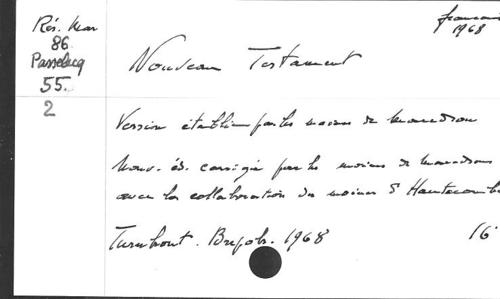 français
1968
Rés. Mar
86
Passelecq
55.
2
Nouveau Testament
Version établie par les moines de Maredsous
Nouv. éd. corrigée par les moines de Maredsous
avec la collaboration des moines d'Hautecombe
Turnhout. Brepols. 1968 16°